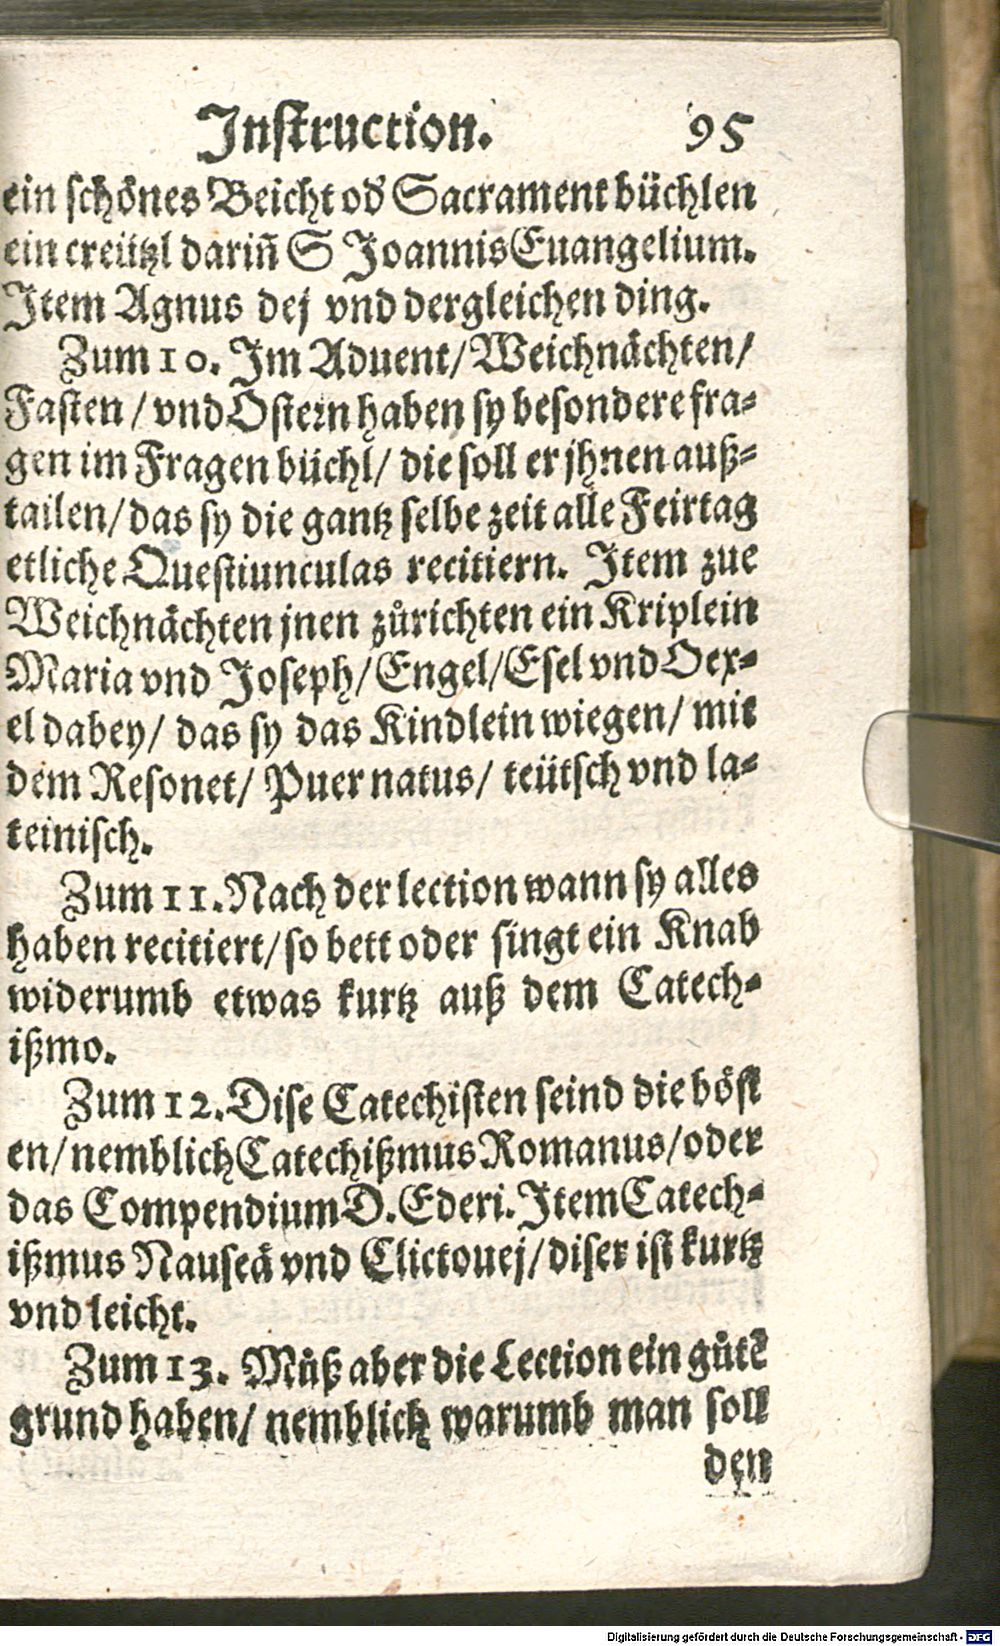 Instruction. 95
ein schönes Beicht od' Sacrament büchlen
ein creützl dariñ S Joannis Euangelium.
Item Agnus dej vnd dergleichen ding.
Zum 10. Im Aduent/ Weichnächten/
Fasten / vnd Ostern haben sy besondere fra-
gen im Fragen büchl/ die soll er jhnen auß-
tailen/ das sy die gantz selbe zeit alle Feirtag
etliche Questiunculas recitiern. Item zue
Weichnächten jnen zůrichten ein Kriplein
Maria vnd Joseph/ Engel/ Esel vnd Oex-
el dabey/ das sy das Kindlein wiegen/ mit
dem Resonet/ Puer natus/ teütsch vnd la-
teinisch.
Zum 11. Nach der lection wann sy alles
haben recitiert/ so bett oder singt ein Knab
widerumb etwas kurtz auß dem Catech-
ißmo.
Zum 12. Dise Catechisten seind die böst
en/ nemblich Catechißmus Romanus/ oder
das Compendium D. Ederi. Item Catech-
ißmus Nauseä vnd Clictouej/ diser ist kurtz
vnd leicht.
Zum 13. Můß aber die Lection ein gůtē
grund haben/ nemblich warumb man soll
den
Digitalisierung gefördert durch die Deutsche Forschungsgemeinschaft - DFG